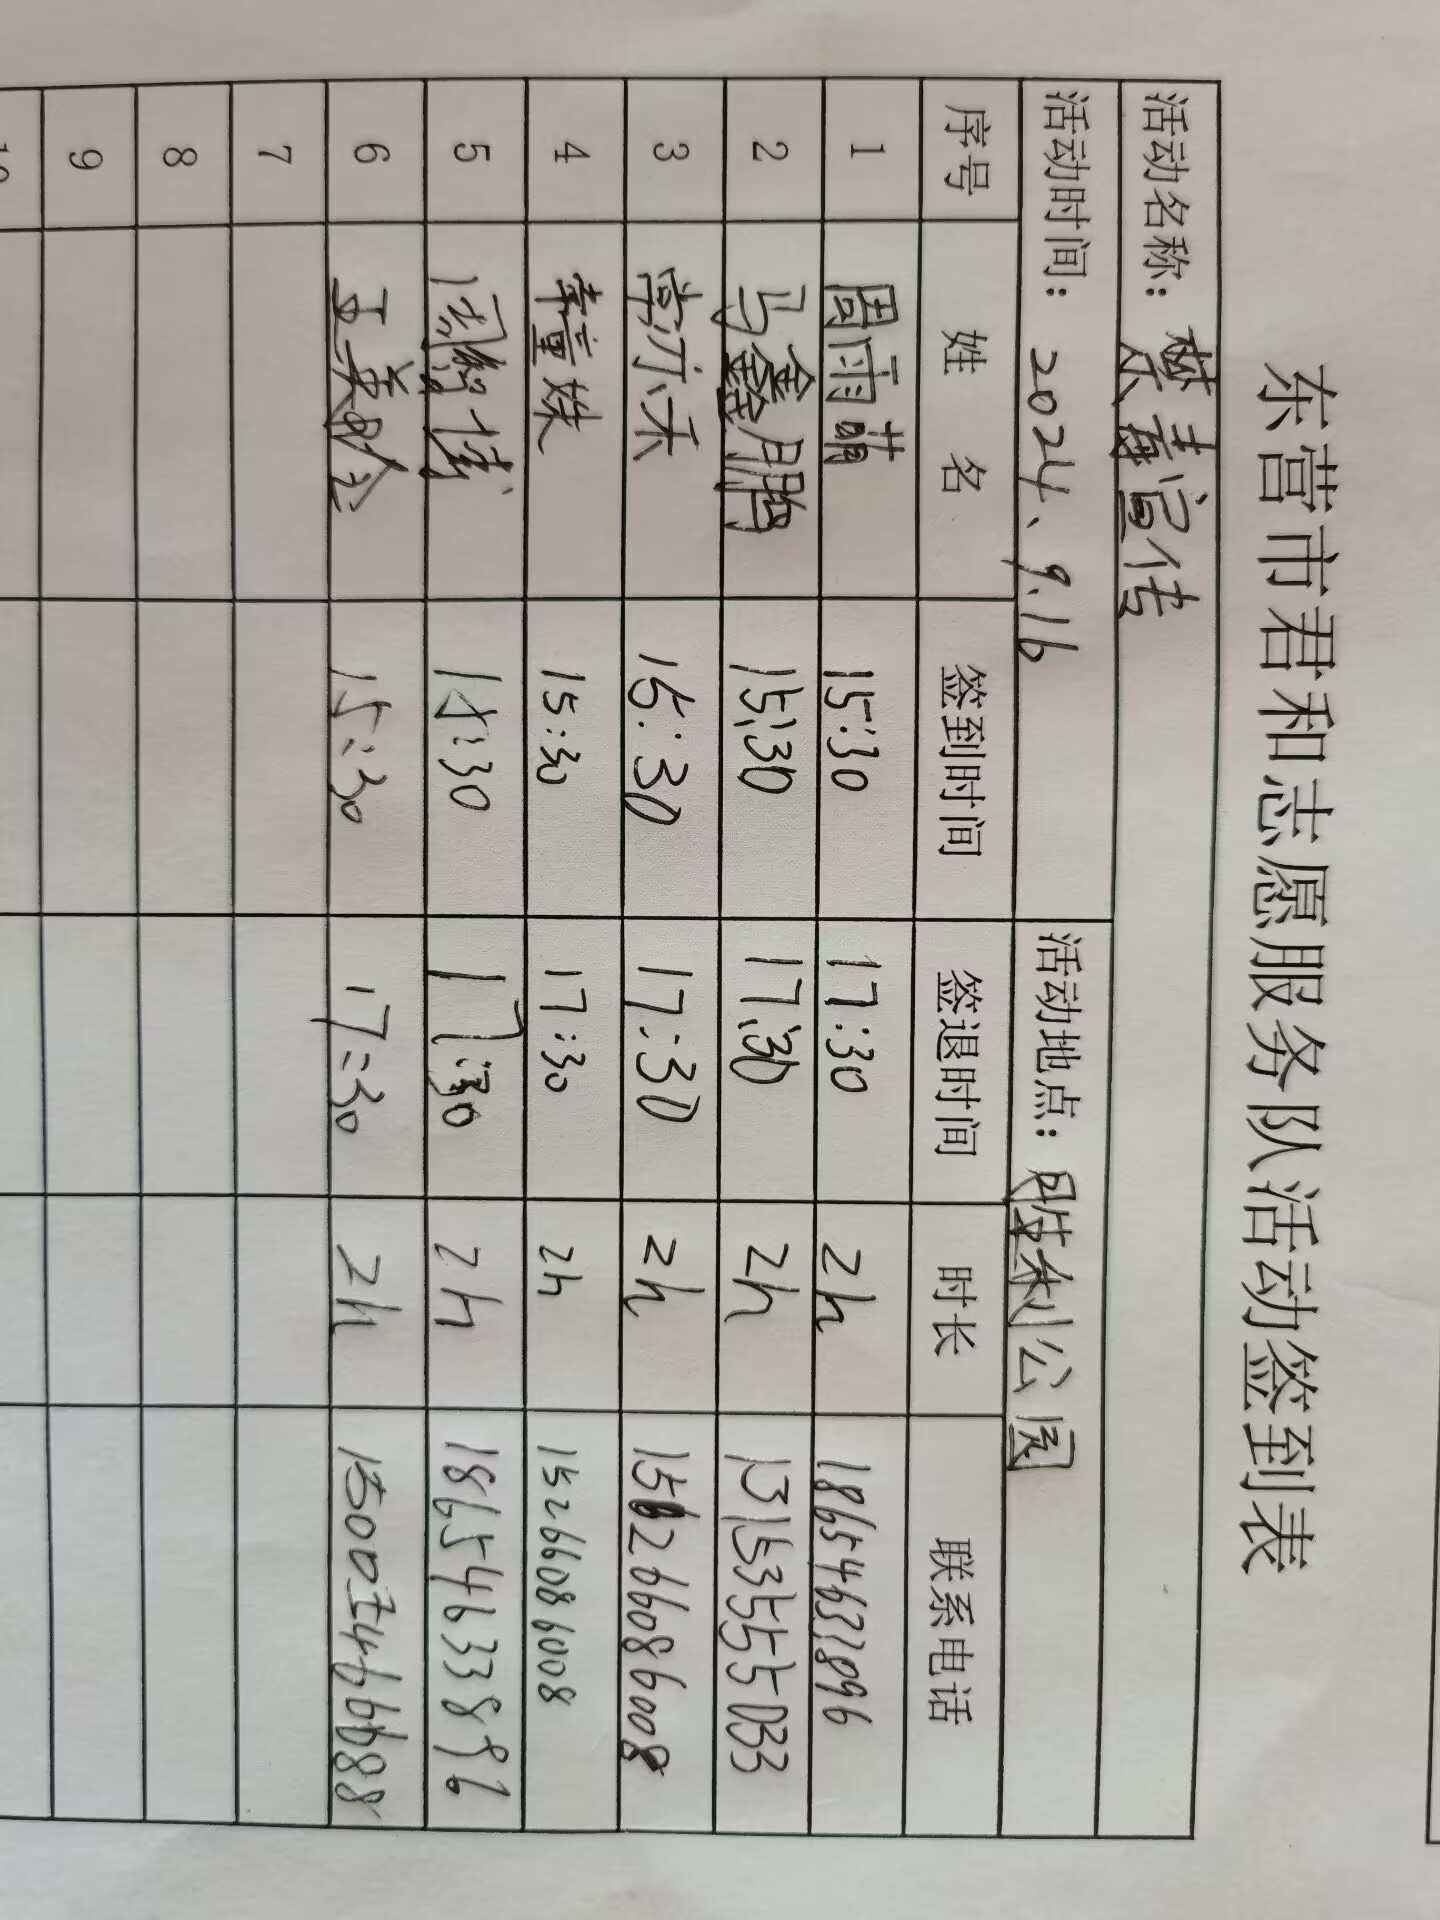 东营市君和志愿服务队活动签到表
活动名称：禁毒宣传
活动时间：2024、9.16 活动地点：胜利公园
序号 姓 名 签到时间 签退时间 时长 联系电话
1 周雨萌 15:30 17:30 2h 18654637896
2 马鑫鹏 15:30 17:30 2h 13153555033
3 常亦禾 15:30 17:30 2h 15266086008
4 15:30 17:30 2h 15266086008
5 15:30 17:30 2h 18654633896
6 15:30 17:30 2h
7
8
9
10